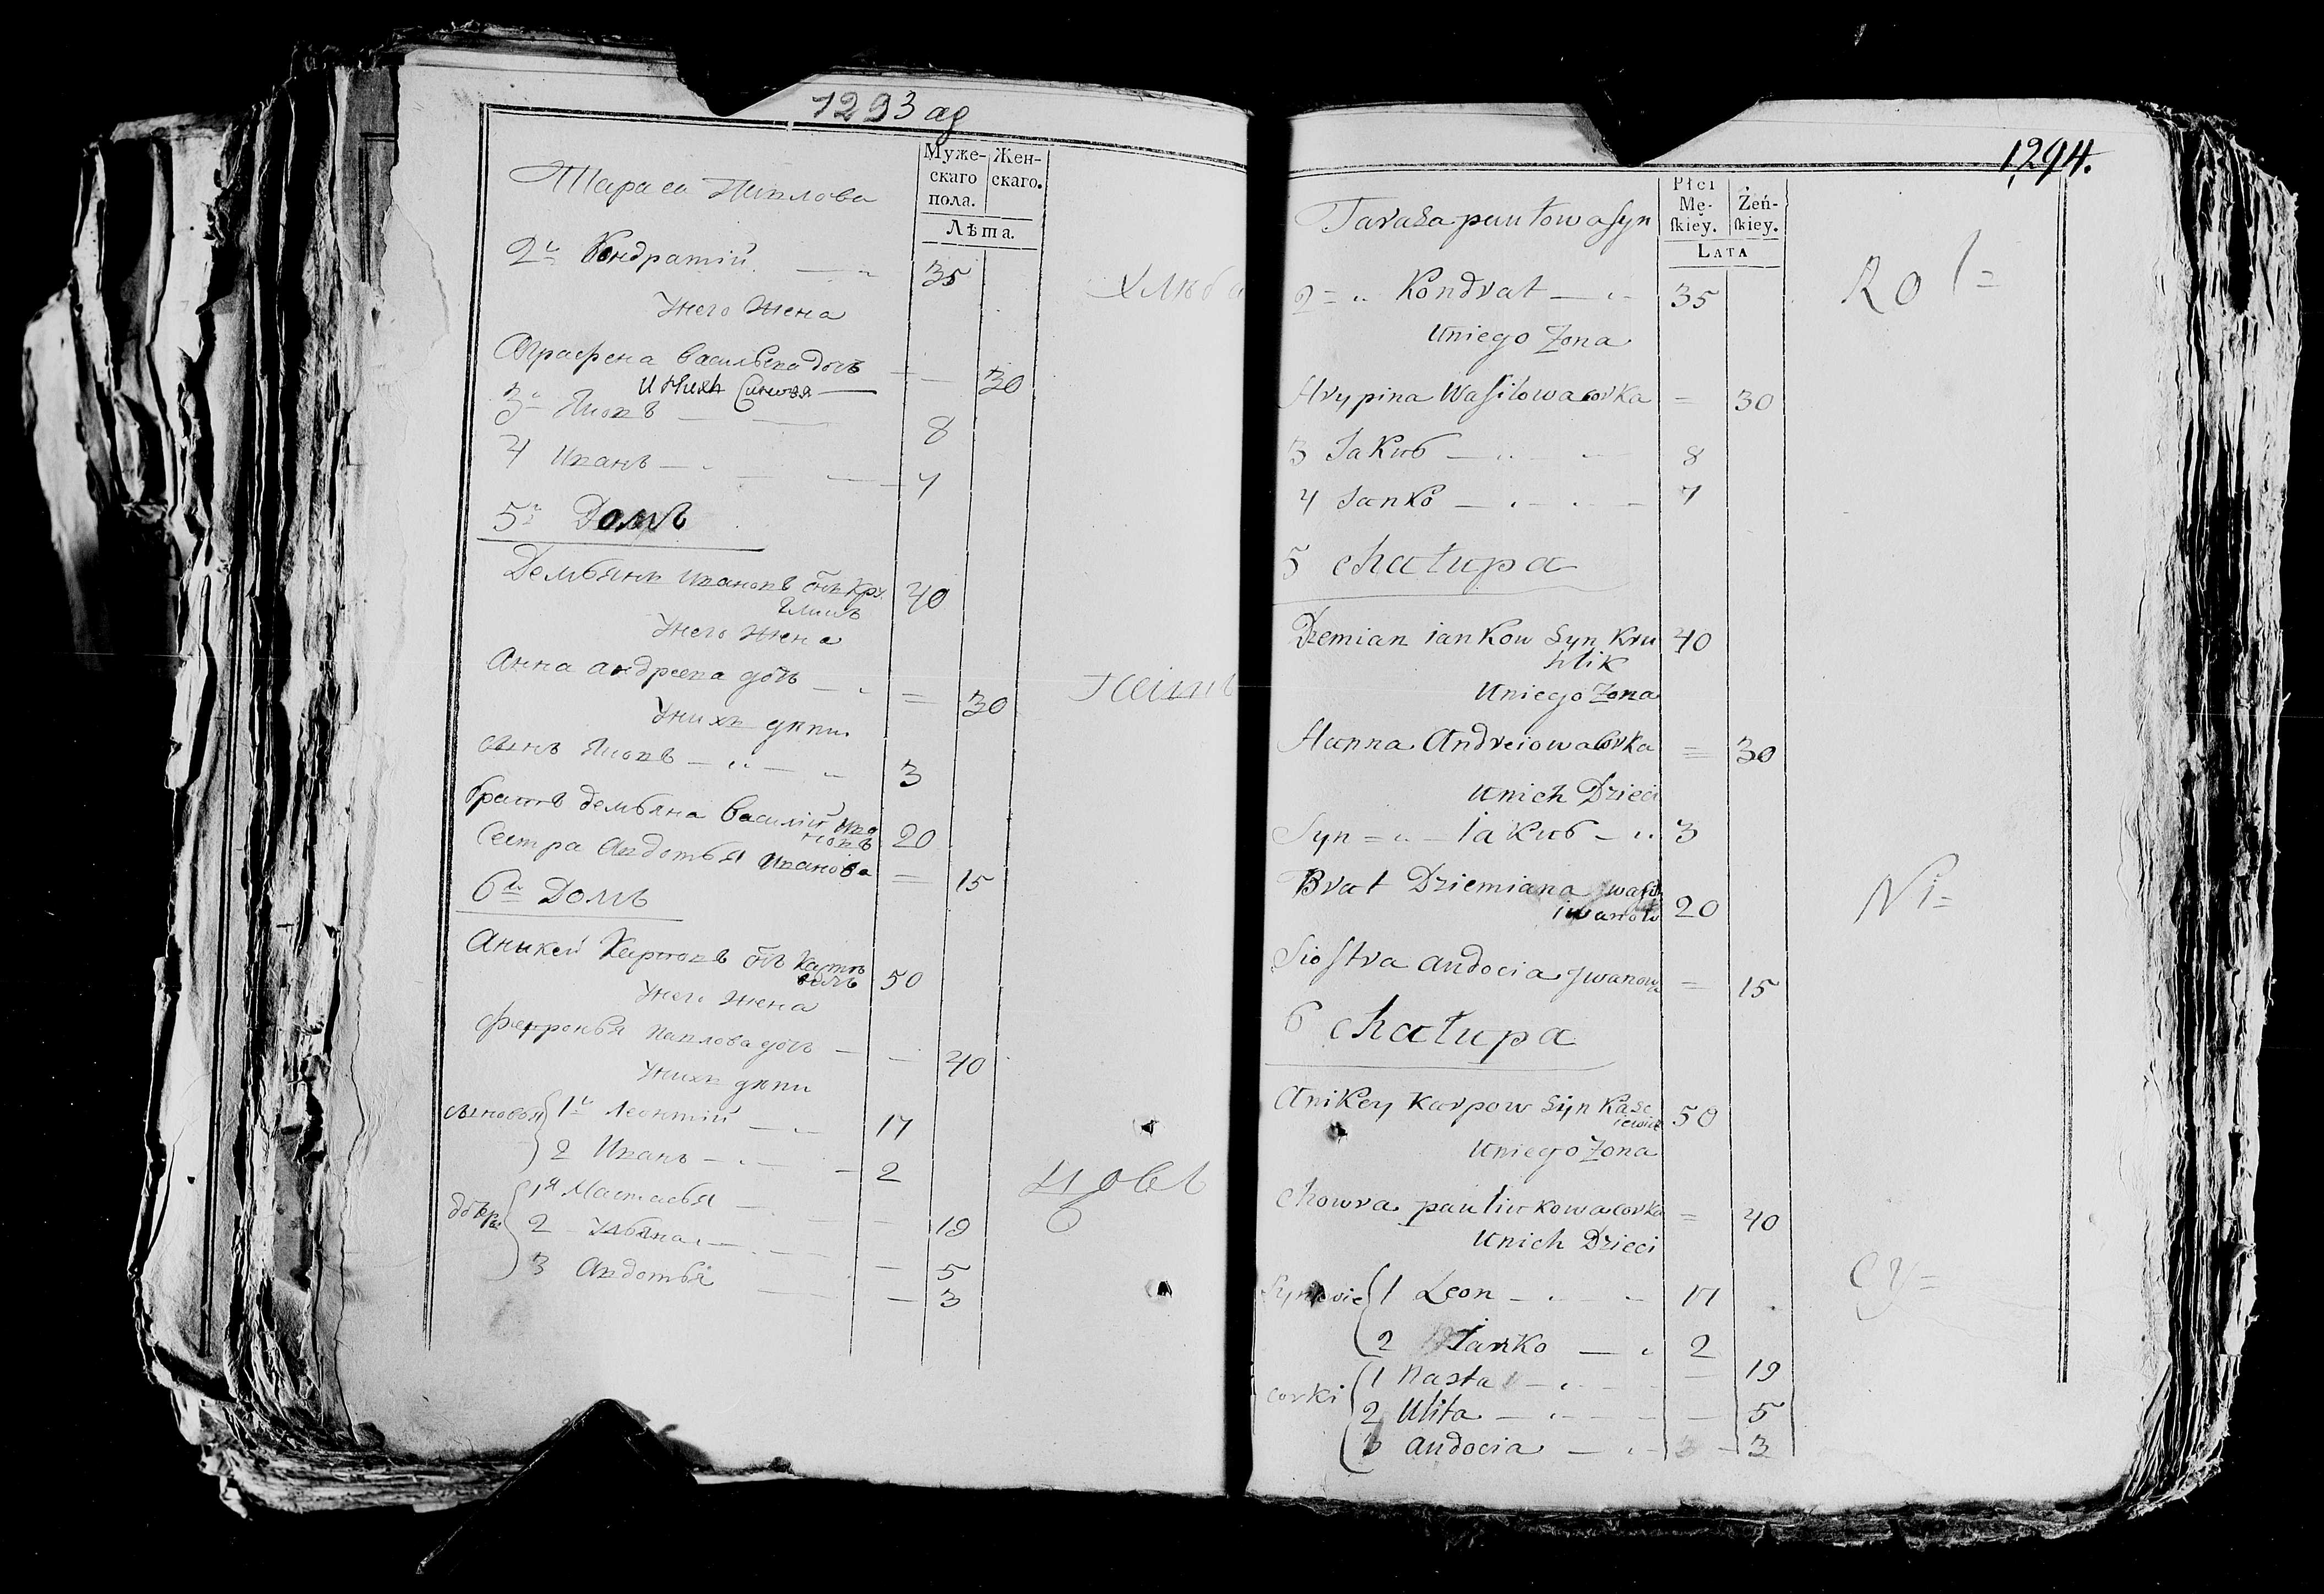 1293 ад
Муже-
скаго
пола.
Жен-
скаго.
Лѣта.
Тараса Павлова
2й Кондратій 35
Унего жена
Аграфена васильева дочь 30
Уних Сыновья
3й Яковъ 8
4 Иванъ 7
5й Домъ
Дембянъ Ивановъ снъ Кру
гликъ 40
Унего жена
Анна андреева дочь = 30
Унихъ дѣти
сынъ Яковъ 3
братъ дембяна Василій Ива
новъ 20
Сестра Авдотья Иванова = 15
6й Домъ
Аникей Карповъ снъ 50
Унего жена
Февронья павлова дочь 40
Унихъ дѣти
сыновья 1й Леонтій 17
2 Иванъ 2
1я Настасья 19
2 Ульяна 5
3 Авдотья 3
1294.
Płci
Mę-
skiey.
Żeń-
skiey.
LATA
Tarasa pautowa Syn
2 = Kondrat 35
Uniego Zona
Hrypina Wasilowa corka = 30
3 Jakub 8
4 Janko 7
5 chatupa
Dzemian iankow Syn Kru
hlik 40
Uniego Zona
Hanna Andreiowa Corka = 30
Unich Dzieci
Syn = Jakub 3
Brat Dziemiana wasil
iwanow 20
Siostra audocia jwanowa = 15
6 chatupa
Anikey Karpow Syn 50
Uniego Zona
Chowra pauliukowa corka = 40
Unich Dzieci
Synowie 1 Leon 17
2 Janko 2
corki 1 Nasta 19
2 Ulita 5
3 audocia 3
Ro l=
Ni=
cy=